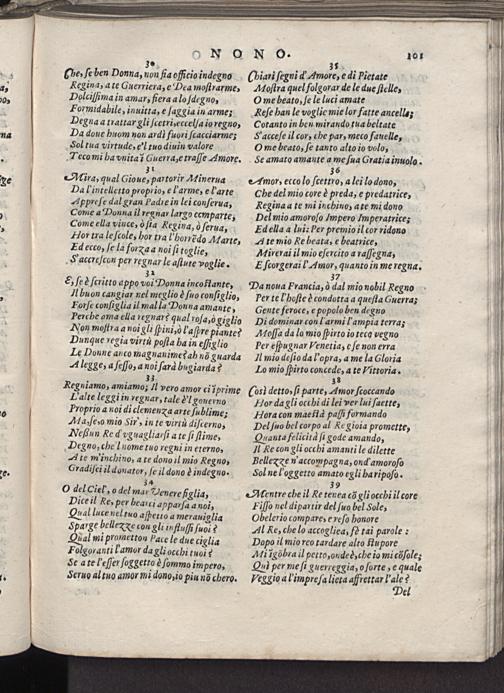 O NONO. 101
30
Che, se ben Donna, non sia officio indegno
Regina, a te Guerriera, e Dea mostrarme,
Dolcissima in amar, fiera a lo sdegno,
Formidabile, inuitta, e saggia in arme;
Degna a trattar gli scetri, eccelsa io regno,
Da doue huom non ardì fuori scacciarme;
Sol tua virtude, e'l tuo diuin valore
Teco mi ha vnita i Guerra, e trasse Amore.
31
Mira, qual Gioue, partorir Minerua
Da l'intelletto proprio, e l'arme, e l'arte
Apprese dal gran Padre in lei conserua,
Come a Donna il regnar largo comparte,
Come ella viuce, ò sia Regina, ò serua,
Hor tra le scole, hor tra l'horrẽdo Marte,
Ed ecco, se la forza a noi si toglie,
S'accrescon per regnar le astute voglie.
32
E, se è scritto appo voi Donna incostante,
Il buon cangiar nel meglio è suo consiglio,
Forse consiglia il mal la Donna amante,
Perche ama ella regnar? qual rosa, ò giglio
Non mostra a noi gli spini, ò l'aspre piante?
Dunque regia virtù posta ha in essiglio
Le Donne anco magnanime? ah nõ guarda
A legge, a sesso, a noi sarà bugiarda?
33
Regniamo, amiamo; Il vero amor ci ĩprime
L'alte leggi in regnar, tale è'l gouerno
Proprio a noi di clemenza arte sublime;
Ma se, o mio Sir', in te virtù discerno,
Nessun Re d'vguagliarsi a te si stime,
Degno, che'l nome tuo regni in eterno,
A te m'inchino, a te dono il mio Regno,
Gradisci il donator, se il dono è indegno.
34
O del Ciel', o del mar Venere figlia,
Dice il Re, per bearci apparsa a noi,
Qual luce nel tuo aspetto a merauiglia
Sparge bellezze con gli influssi suoi?
Qual mi promettõn Pace le due ciglia
Folgoranti l'amor da gli occhi tuoi?
Se a te l'esser soggetto è sommo impero,
Seruo al tuo amor mi dono, io piu nõ chero.
35
Chiari segni d'Amore, e di Pietate
Mostra quel folgorar de le due stelle,
O me beato, se le luci amate
Rese han le voglie mie lor fatte ancelle;
Cotanto in ben mirando tua beltate
S'accese il cor, che par, meco fauelle,
O me beato, se tanto alto io volo,
Se amato amante a me sua Gratia inuolo.
36
Amor, ecco lo scettro, a lei lo dono,
Che del mio core è preda, e predatrice,
Regina a te mi inchino, a te mi dono
Del mio amoroso Impero Imperatrice;
Ed ella a lui: Per premio il cor ridono
A te mio Re beata, e beatrice,
Mirerai il mio essercito a rassegna,
E scorgerai l'Amor, quanto in me regna.
37
Da noua Francia, ò dal mio nobil Regno
Per te l'hoste è condotta a questa Guerra;
Gente feroce, e popolo ben degno
Di dominar con l'armi l'ampia terra;
Mossa da lo mio spirto io teco vegno
Per espugnar Venetia, e se non erra
Il mio desio da l'opra, a me la Gloria
Lo mio spirto concede, a te Vittoria.
38
Così detto, si parte, Amor scoccando
Hor da gli occhi di lei ver lui saette,
Hora con maestà passi formando
Del suo bel corpo al Re gioia promette,
Quanta felicità si gode amando,
Il Re con gli occhi amanti le dilette
Bellezze n'accompagna, ond'amoroso
Sol ne l'oggetto amato egli ha riposo.
39
Mentre che il Re tenea cõ gli occhi il core
Fisso nel dipartir del suo bel Sole,
Obelerio compare, e reso honore
Al Re, che lo accogliea, fè tai parole:
Dopo il mio reo tardare alto stupore
Mi ĩgõbra il petto, onde è, che io mi cõsole;
Quì per me si guerreggia, o sorte, e quale
Veggio a l'impresa lieta affrettar l'ale?
Del